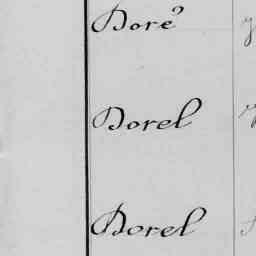 Doré
Dorel
Dorel